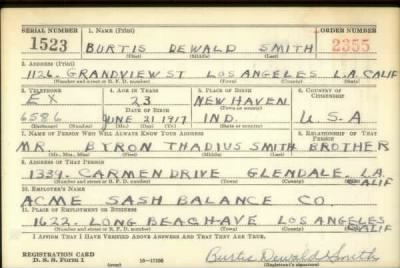 SERIAL NUMBER 1. NAME (Print) ORDER NUMBER
1523 BURTIS DEWALD SMITH 2355
(First) (Middle) (Last)
2. ADDRESS (Print)
1126. GRANDVIEW ST LOS ANGELES L.A. CALIF
(Number and street or R. F. D. number) (Town) (County) (State)
3. TELEPHONE 4. AGE IN YEARS 5. PLACE OF BIRTH 6. COUNTRY OF CITIZENSHIP
EX 23 NEW HAVEN
DATE OF BIRTH (Town or county)
6586 JUNE 21 1917 IND. U.S.A
(Exchange) (Number) (Mo.) (Day) (Yr.) (State or country)
7. NAME OF PERSON WHO WILL ALWAYS KNOW YOUR ADDRESS 8. RELATIONSHIP OF THAT PERSON
MR BYRON THADIUS SMITH BROTHER
(Mr., Mrs., Miss) (First) (Middle) (Last)
9. ADDRESS OF THAT PERSON
1339. CARMEN DRIVE GLENDALE. LA. CALIF
(Number and street or R. F. D. number) (Town) (County) (State)
10. EMPLOYER'S NAME
ACME SASH BALANCE CO.
11. PLACE OF EMPLOYMENT OR BUSINESS
1622. LONG BEACH AVE LOS ANGELES CALIF
(Number and street or R. F. D. number) (Town) (County) (State)
I AFFIRM THAT I HAVE VERIFIED ABOVE ANSWERS AND THAT THEY ARE TRUE.
REGISTRATION CARD
D. S. S. Form 1 (over) Burtis Dewald Smith
(Registrant's signature)